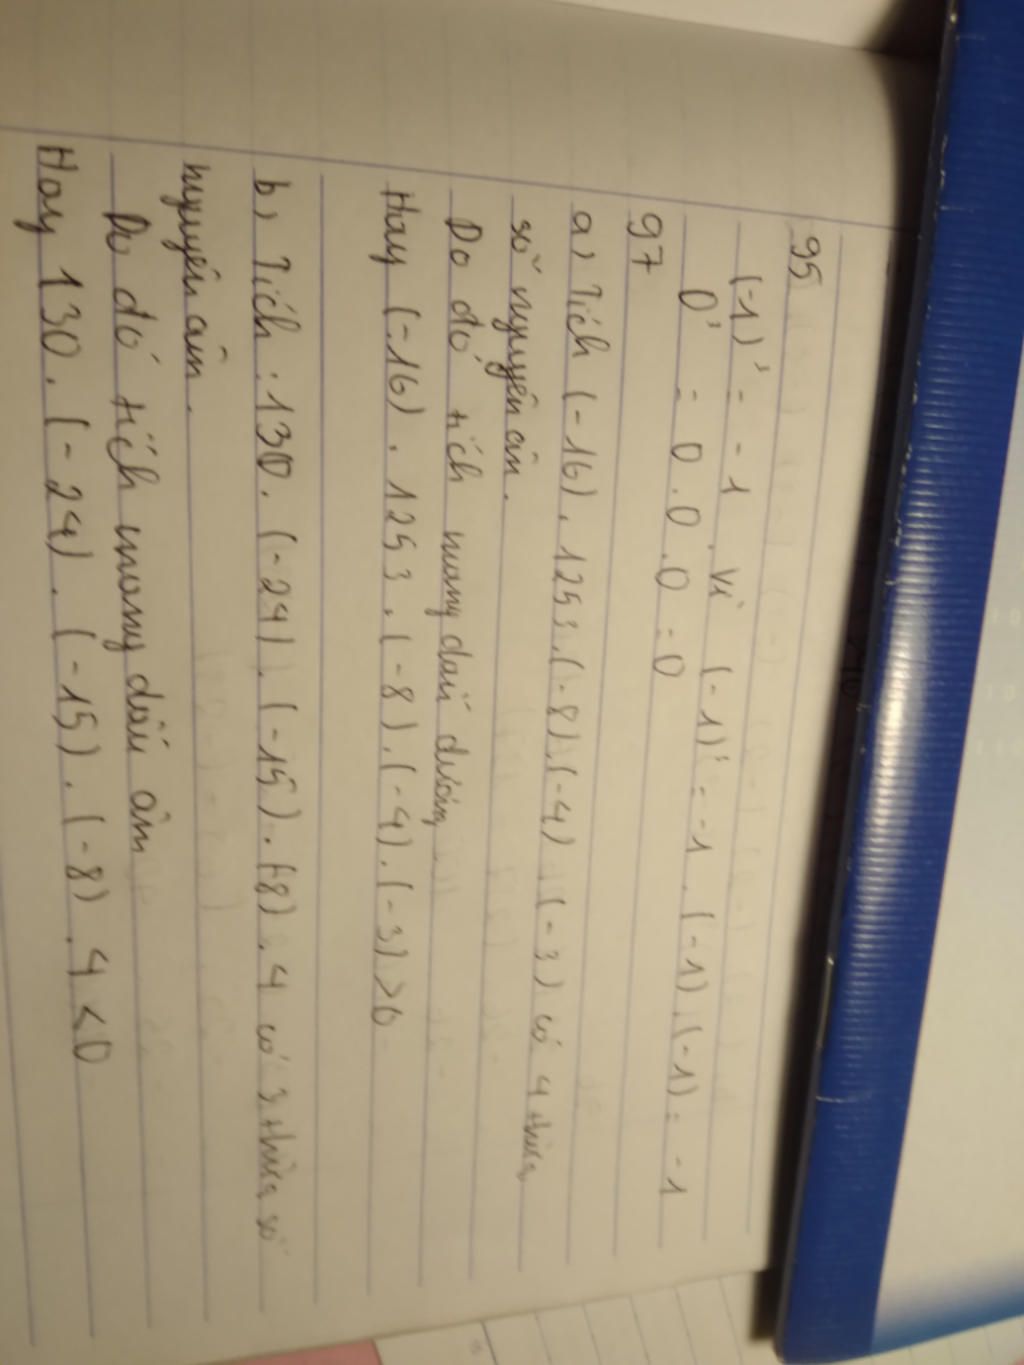 95
(-1)³ = -1 . vì (-1)³ = -1 . (-1) . (-1) = -1
0³ = 0 . 0 . 0 = 0
97
a) Tích (-16) . 1253 . (-8) . (-4) . (-3) có 4 thừa
số nguyên âm .
Do đó tích mang dấu dương
Hay (-16) . 1253 . (-8) . (-4) . (-3) > 0
b) Tích : 130 . (-24) . (-15) . (-8) . 4 có 3 thừa số
nguyên âm .
Do đó tích mang dấu âm
Hay 130 . (-24) . (-15) . (-8) . 4 < 0